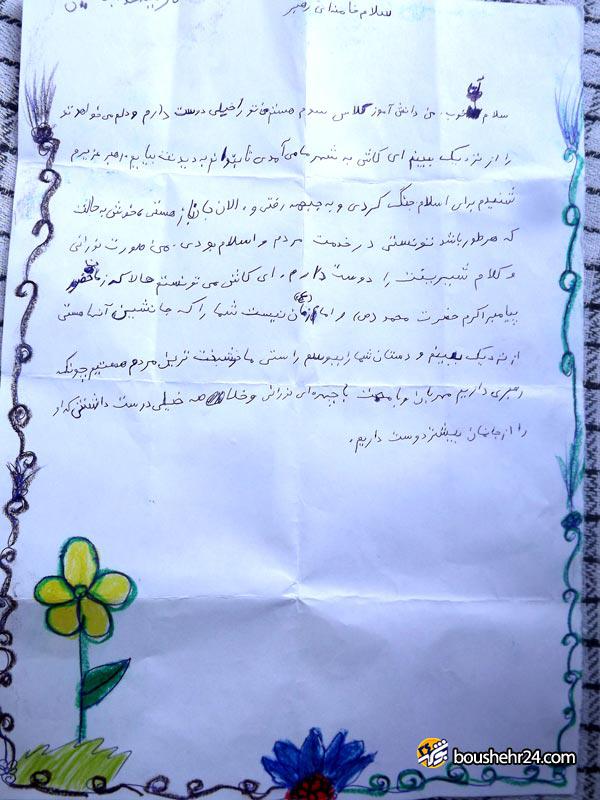 سلام خامنه‌ای رهبر
سلام آقا خوب. من دانش آموز کلاس سوم هستم من تو را خیلی دوست دارم و دلم می خواهد تو
را از نزدیک ببینم ای کاش به شهر ما می آمدی تا بتوانم به دیدنت بیایم. رهبر عزیزم
شنیدم برای اسلام جنگ کردی و به جبهه رفتی و. الان جانباز هستی، خوش به حالت
که هر طور باشد تونستی در خدمت مردم و اسلام بودی. من صورت نورانی
و کلام شیرینت را دوست دارم. ای کاش می تونستم حالا که زمان حضور
پیامبر اکرم حضرت محمد (ص) و امام زمان (عج) نیست شما را که جانشین آنها هستی
از نزدیک ببینم و دستان شما را ببوسم راستی ما خوشبخت ترین مردم هستیم چونکه
رهبری داریم مهربان و با محبت با چهره ای نورانی و خیلی دوست داشتنی که او
را از جانمان بیشتر دوست داریم.
boushehr24.com